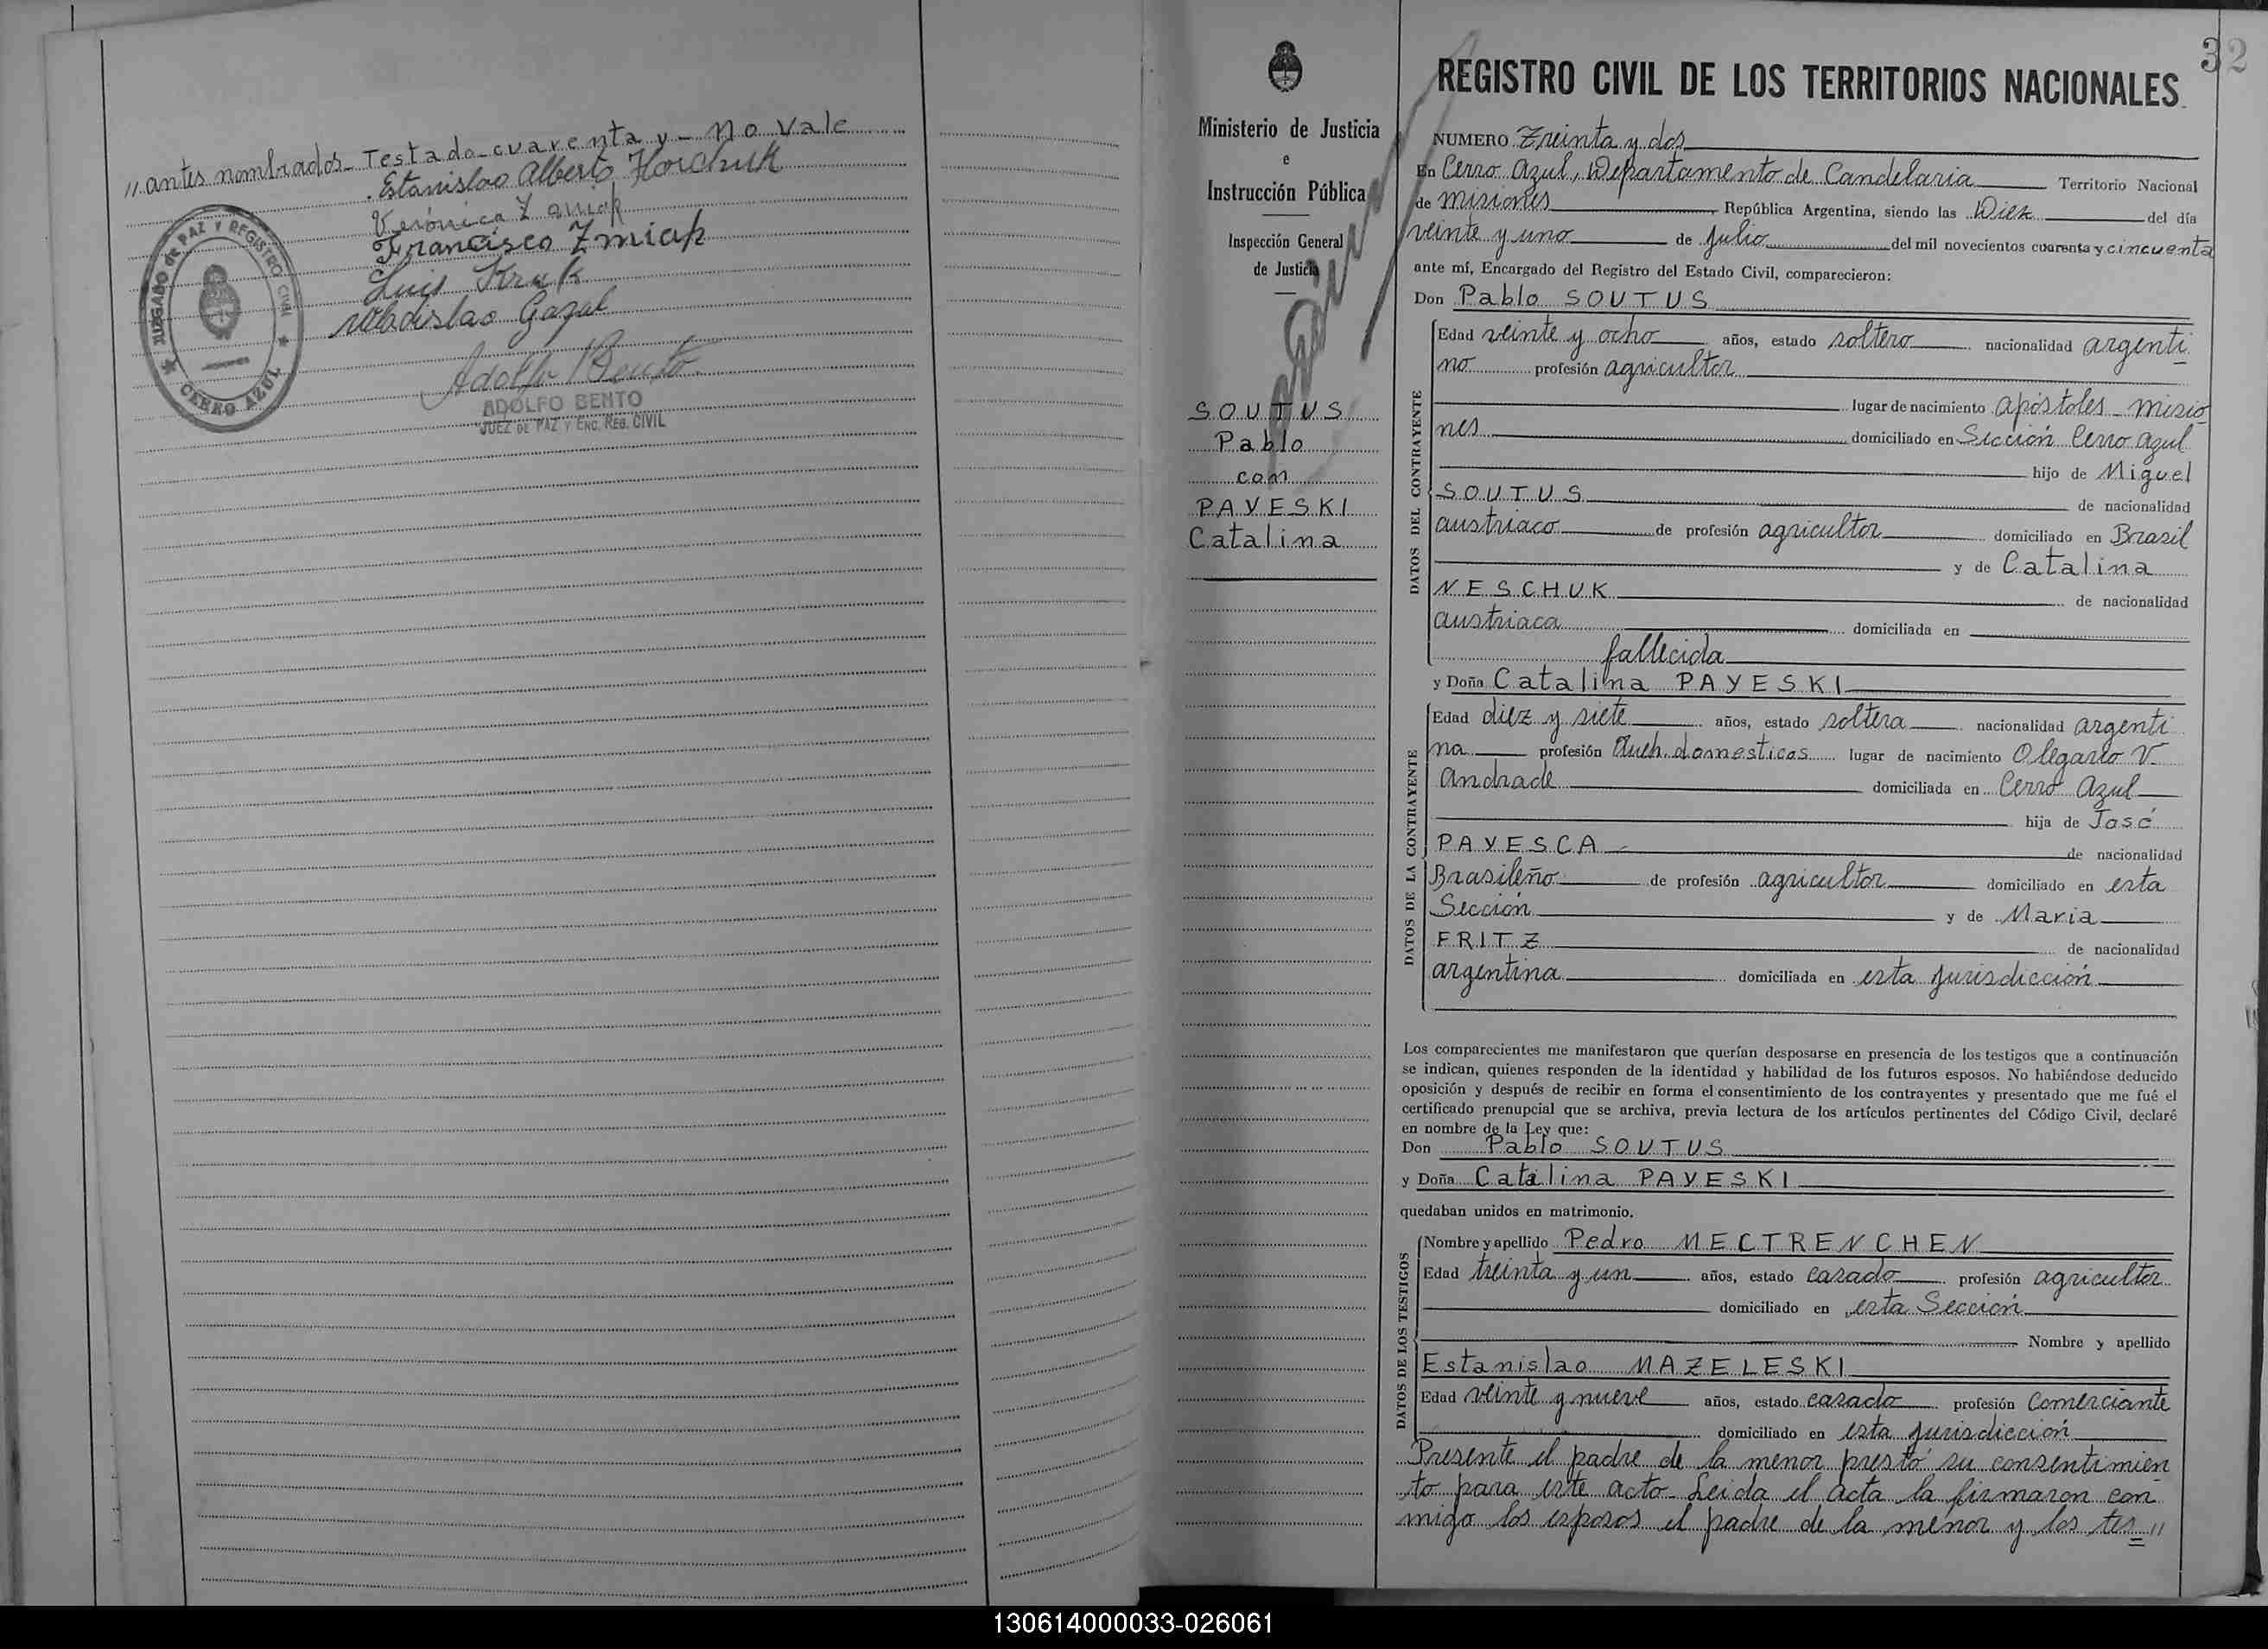 " antes nombrados - Testado - cuarenta y - No Vale
Estanislao Alberto Horchuk
Verónica Zmiak
Francisco Zmiak
Luis Kruk
Wladislao Gazal
Adolfo Bento
ADOLFO BENTO
JUEZ DE PAZ Y ENC. REG. CIVIL
JUZGADO de PAZ Y REGISTRO CIVIL
CERRO AZUL
32
Ministerio de Justicia
e
Instrucción Pública
Inspección General
de Justicia
SOUTUS
Pablo
con
PAYESKI
Catalina
REGISTRO CIVIL DE LOS TERRITORIOS NACIONALES
NUMERO Treinta y dos
En Cerro Azul, Departamento de Candelaria Territorio Nacional
de Misiones República Argentina, siendo las Diez del día
veinte y uno de Julio del mil novecientos cuarenta y cincuenta
ante mí, Encargado del Registro del Estado Civil, comparecieron:
Don Pablo SOUTUS
DATOS DEL CONTRAYENTE
Edad veinte y ocho años, estado soltero nacionalidad argenti
no profesión agricultor
lugar de nacimiento Apóstoles - Misio
nes domiciliado en Sección Cerro Azul
hijo de Miguel
SOUTUS de nacionalidad
austriaco de profesión agricultor domiciliado en Brasil
y de Catalina
NESCHUK de nacionalidad
austriaca domiciliada en
fallecida
y Doña Catalina PAYESKI
DATOS DE LA CONTRAYENTE
Edad diez y siete años, estado soltera nacionalidad argenti
na profesión Queh. domesticos lugar de nacimiento Olegario V.
Andrade domiciliada en Cerro Azul
hija de José
PAYESCA de nacionalidad
Brasileño de profesión agricultor domiciliado en esta
Sección y de Maria
FRITZ de nacionalidad
argentina domiciliada en esta Jurisdicción
Los comparecientes me manifestaron que querían desposarse en presencia de los testigos que a continuación
se indican, quienes responden de la identidad y habilidad de los futuros esposos. No habiéndose deducido
oposición y después de recibir en forma el consentimiento de los contrayentes y presentado que me fué el
certificado prenupcial que se archiva, previa lectura de los artículos pertinentes del Código Civil, declaré
en nombre de la Ley que:
Don Pablo SOUTUS
y Doña Catalina PAYESKI
quedaban unidos en matrimonio.
DATOS DE LOS TESTIGOS
Nombre y apellido Pedro MECTRENCHEN
Edad treinta y un años, estado casado profesión agricultor
domiciliado en esta Sección
Nombre y apellido
Estanislao MAZELESKI
Edad veinte y nueve años, estado casado profesión Comerciante
domiciliado en esta Jurisdicción
Presente el padre de la menor prestó su consentimien
to para este acto - Leida el acta la firmaron con
migo los esposos el padre de la menor y los tes "
130614000033-026061